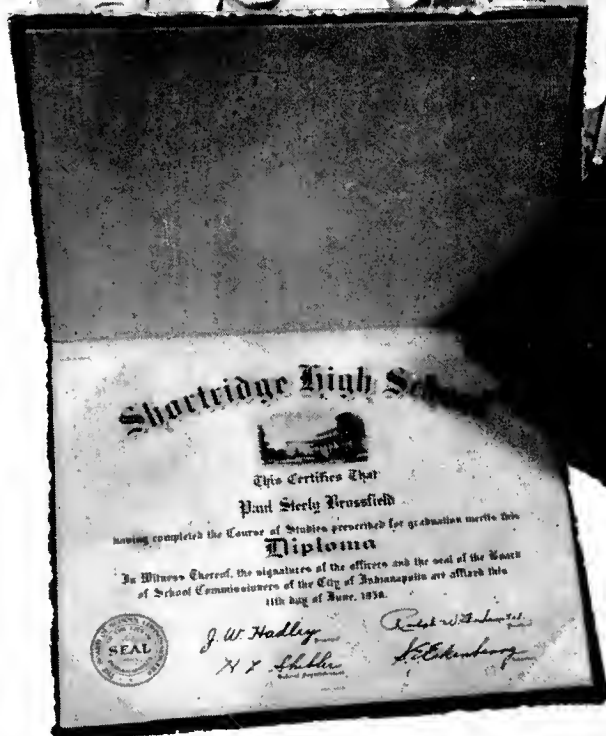 Shortridge High School
This Certifies That
Paul Steely Brossfield
having completed the Course of Studies prescribed for graduation merits this
Diploma
In Witness Thereof, the signatures of the officers and the seal of the Board
of School Commissioners of the City of Indianapolis are affixed this
11th day of June,
SEAL
J. W. Hadley